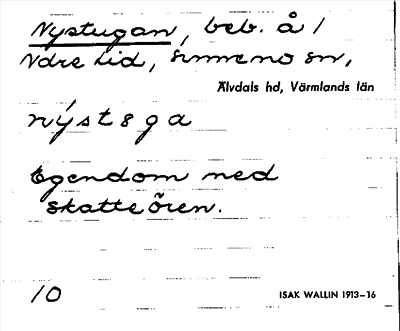 Nystugan, beb. å 1
Ndre Lid, Ennmeno sn,
Älvdals hd, Värmlands län
nýst8ga
Egendom med
skatte ören.
10
ISAK WALLIN 1913–16